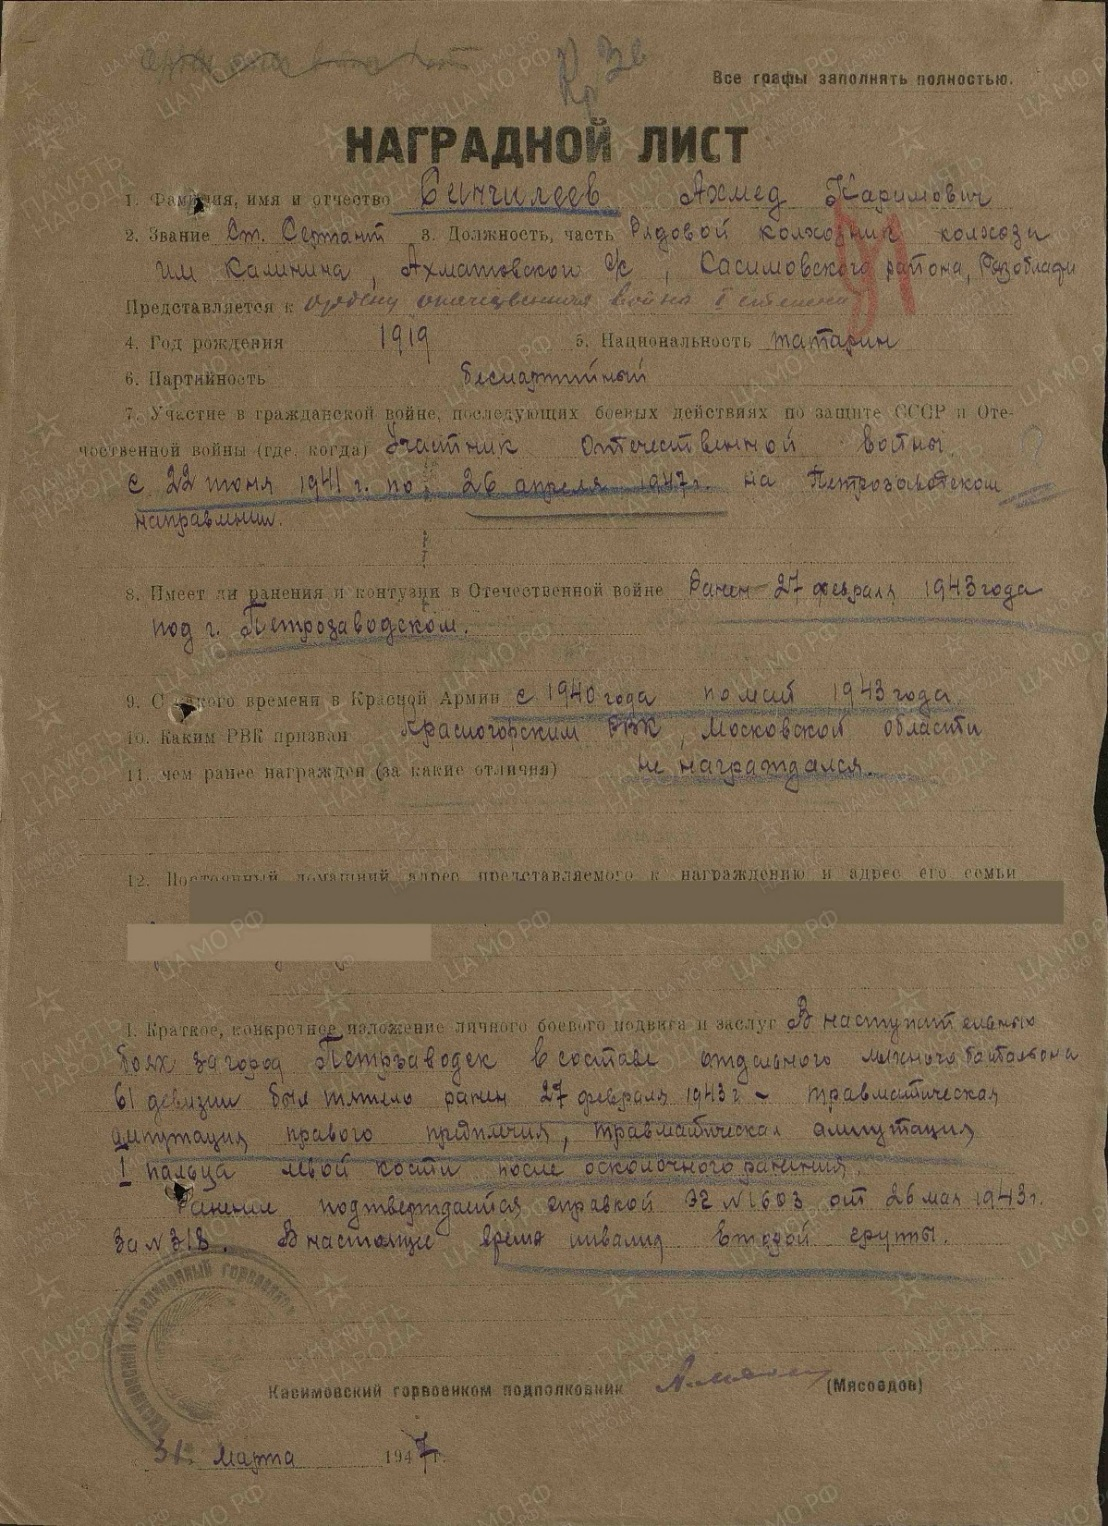 Все графы заполнять полностью.
НАГРАДНОЙ ЛИСТ
1. Фамилия, имя и отчество Синчилеев Ахмед Каримович
2. Звание Ст. Сержант 3. Должность, часть Рядовой колхозник колхоза
им Калинина, Ахматовской с/с, Касимовского района, Ряз области
Представляется к ордену отечественная война I степени
4. Год рождения 1919 5. Национальность татарин
6. Партийность беспартийный
7. Участие в гражданской войне, последующих боевых действиях по защите СССР и Оте-
чественной войны (где, когда) Участник Отечественной войны
с 22 июня 1941 г. по 26 апреля 1947 г. на Петрозаводском
направлении.
8. Имеет ли ранения и контузии в Отечественной войне Ранен 27 февраля 1943 года
под г. Петрозаводском.
9. С какого времени в Красной Армии с 1940 года по май 1943 года
10. Каким РВК призван Красногорским РВК, Московской области
11. чем ранее награжден (за какие отличия) не награждался.
12. Постоянный домашний адрес представляемого к награждению и адрес его семьи
1. Краткое, конкретное изложение личного боевого подвига и заслуг В наступительных
боях за город Петрзаводск в составе отдельного лыжного батальона
61 дивизии был тяжело ранен 27 февраля 1943 г – травматическая
ампутация правого предплечия, травматическая ампутация
I пальца левой кости после осколочного ранения.
Ранение подтверждается справкой ЭГ №1603 от 26 мая 1943 г.
за №318. В настоящие время инвалид второй группы.
Касимовский горвоенком подполковник (Мясоедов)
31 Марта 1947 г.